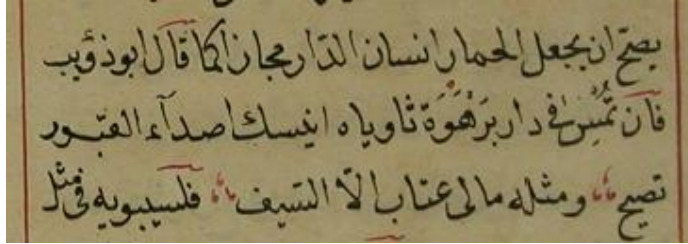 يصح ان يجعل الحمار انسان الدار مجازا كما قال ابوذؤيب
فان تمس فى دار برهوة ثاويا ه انيسك اصدآء القبور
تصيح ومثله مالى عتاب الا السيف فلسيبويه فى مثل